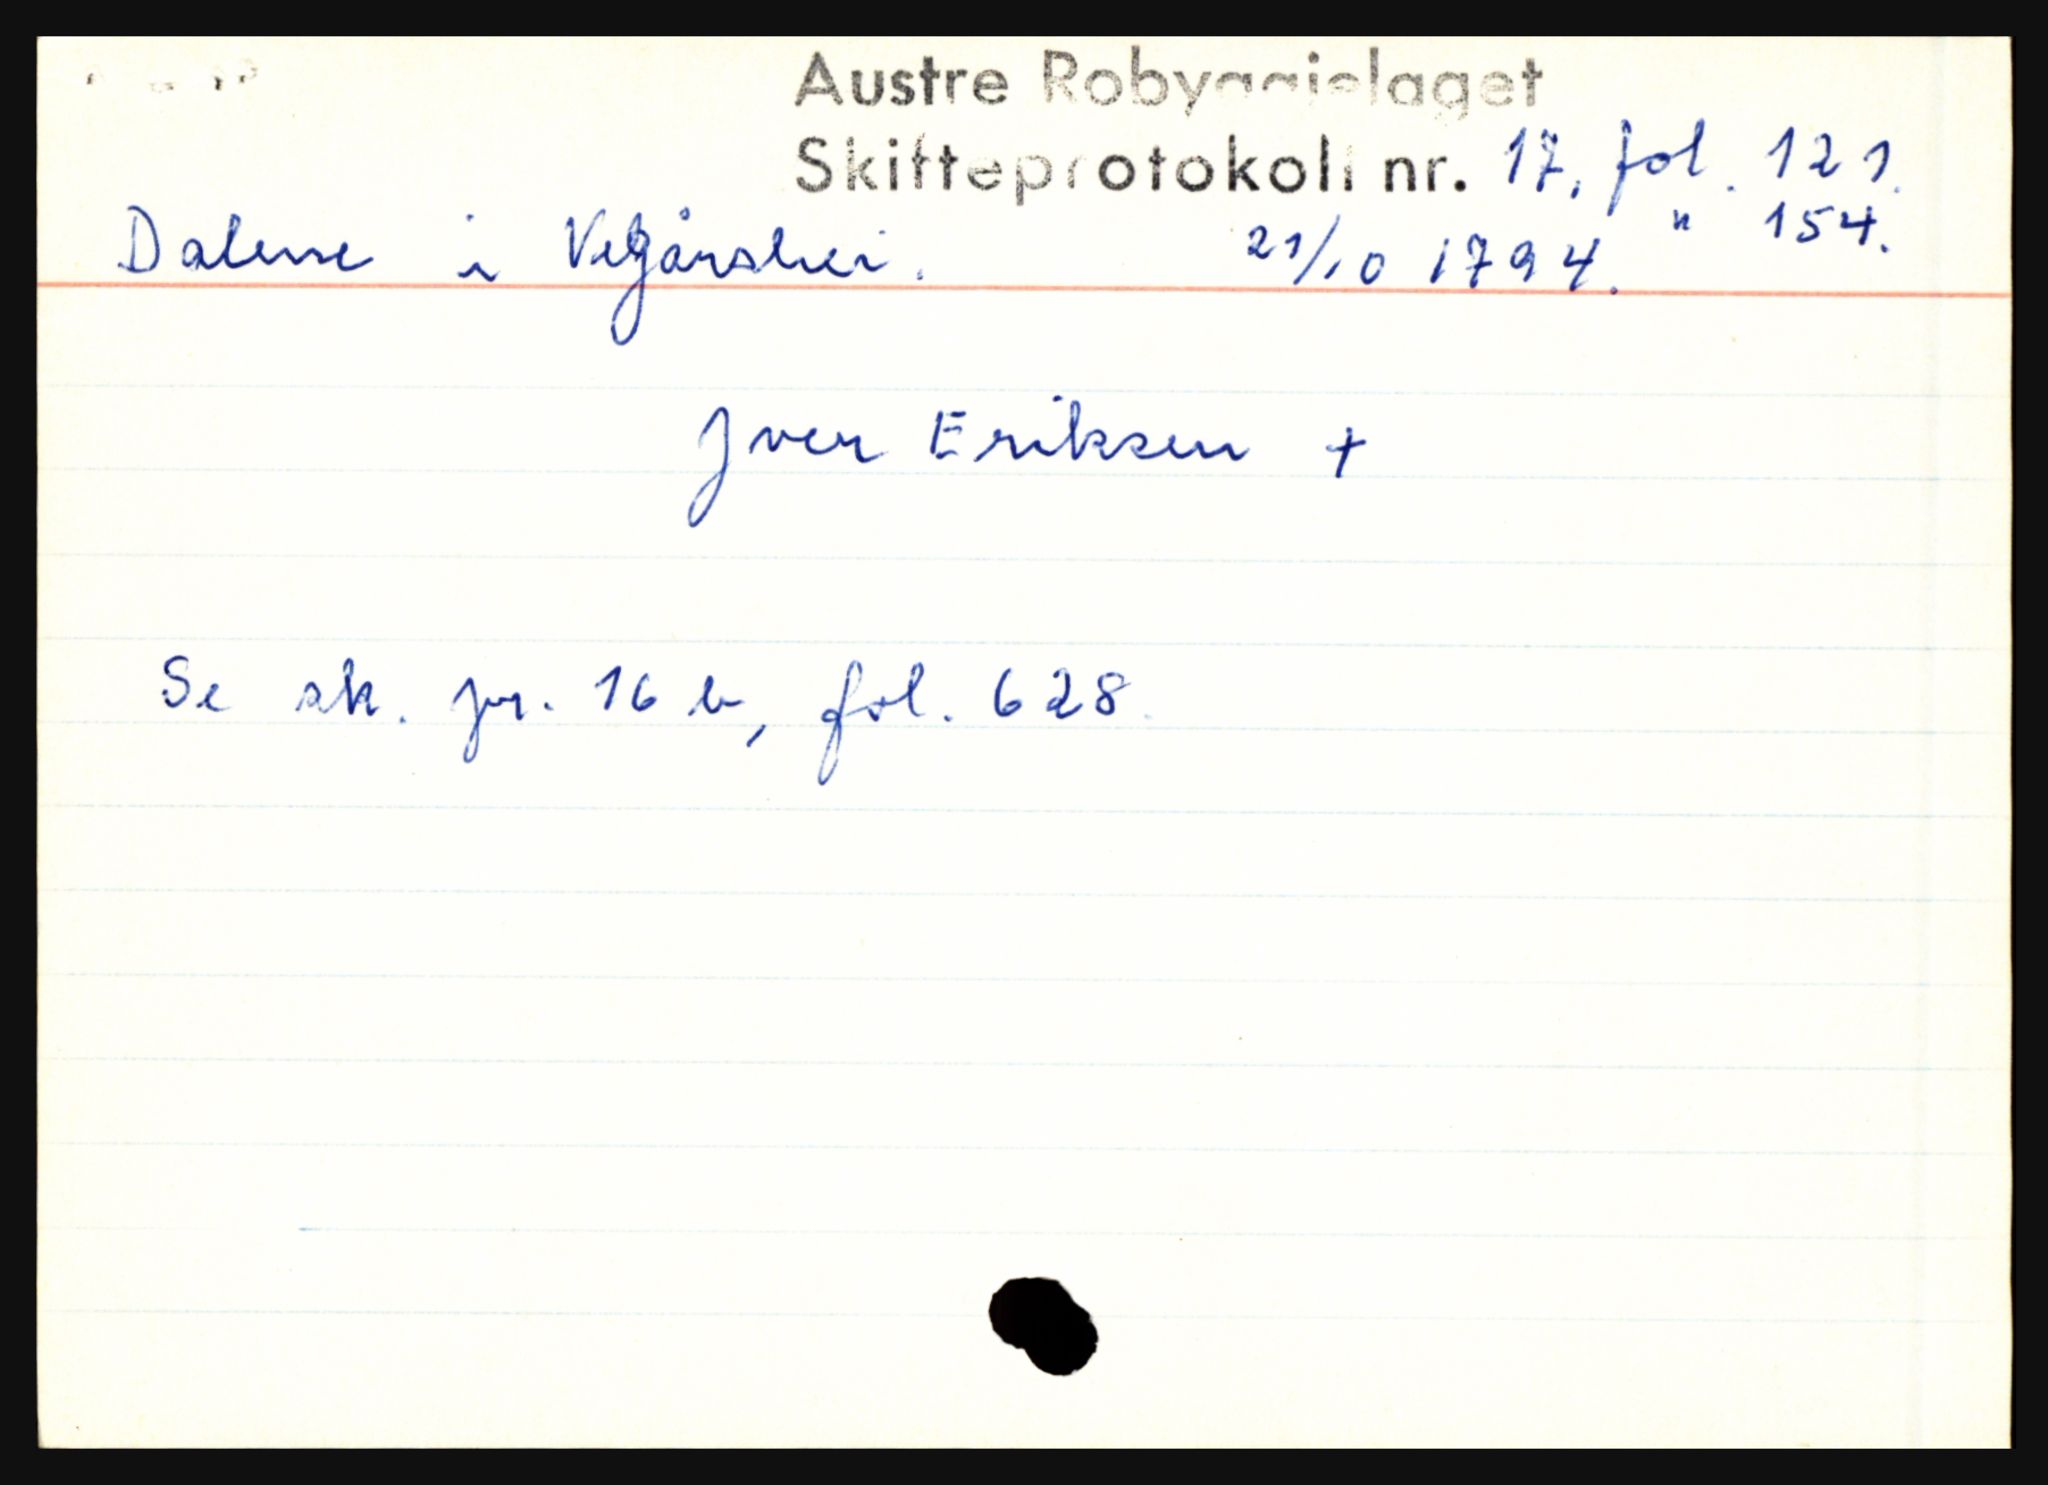 Austre Robyggjelaget
Skifteprotokoll nr. 17, fol. 121.
Dalene i Vegårshei. 21/10 1794. " 154.
Jver Eriksen +
Se sk. pr. 16 b, fol. 628.